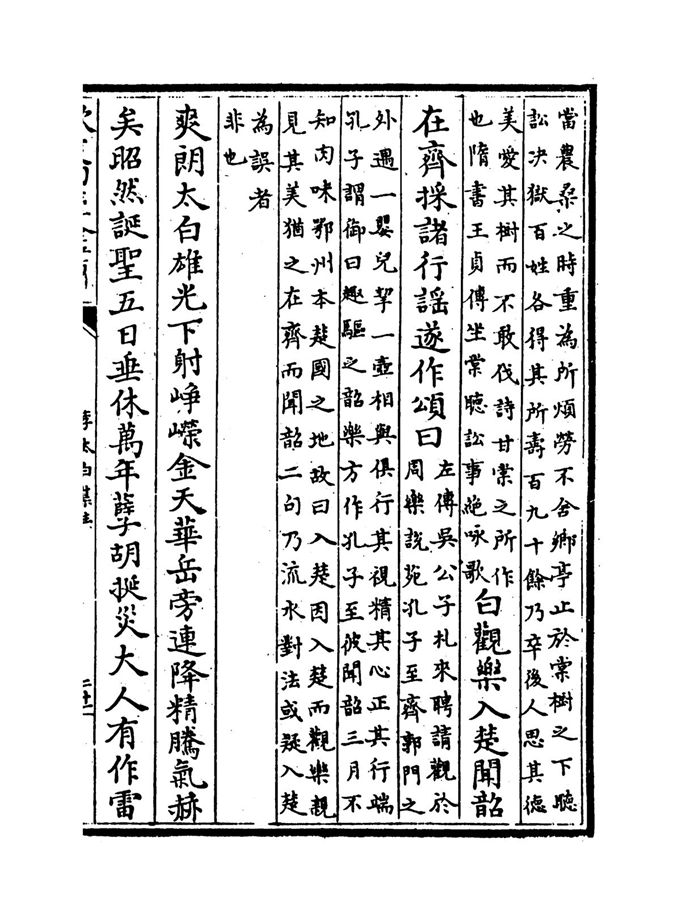 當農桑之時重為所煩勞不舍鄉亭止於棠樹之下聽
訟決獄百姓各得其所壽百九十餘乃卒後人思其徳
美愛其樹而不敢伐詩甘棠之所作
也隋書王貞傳坐棠聽訟事絶咏歌
白觀樂入楚聞韶
在齊採諸行謡遂作頌曰
左傳吳公子札來聘請觀於
周樂説苑孔子至齊郭門之
外遇一嬰兒挈一壺相與俱行其視精其心正其行端
孔子謂御曰趣驅之韶樂方作孔子至彼聞韶三月不
知肉味鄂州本楚國之地故曰入楚因入楚而觀樂親
見其美猶之在齊而聞韶二句乃流水對法或疑入楚
為誤者
非也
爽朗太白雄光下射峥嶸金天華岳旁連降精騰氣赫
矣昭然誕聖五日垂休萬年孽胡挻災大人有作雷
李太白集注